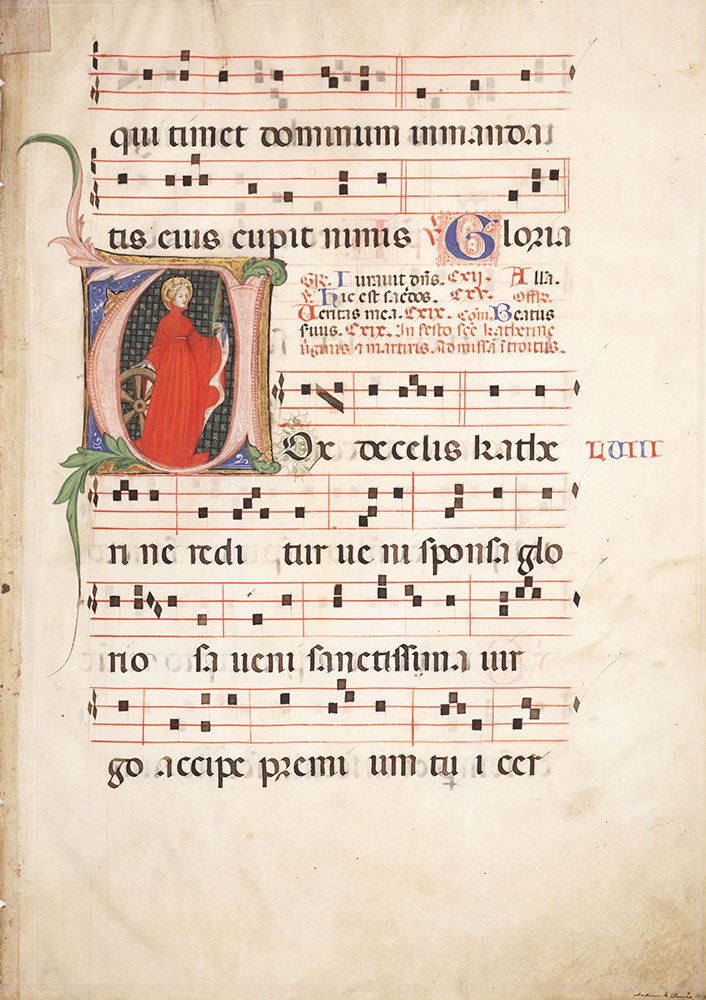 qui timet dominum in manda
tis eius cupit nimis ℣ Gloria
GR. Iuravit dñs. CXII. Alla.
℣. Hic est sac̄dos. CXV. Offr̄.
Ueritas mea. CXIX. Com̄. Beatus
suus. CXIX. In festo sc̄e katherine
ũginis & martiris. ad missã ĩtroitus.
Uox de celis kathe
LVIII
ri ne redi tur ue ni sponsa glo
rio sa ueni sanctissima uir
go accipe premi um tu i cer